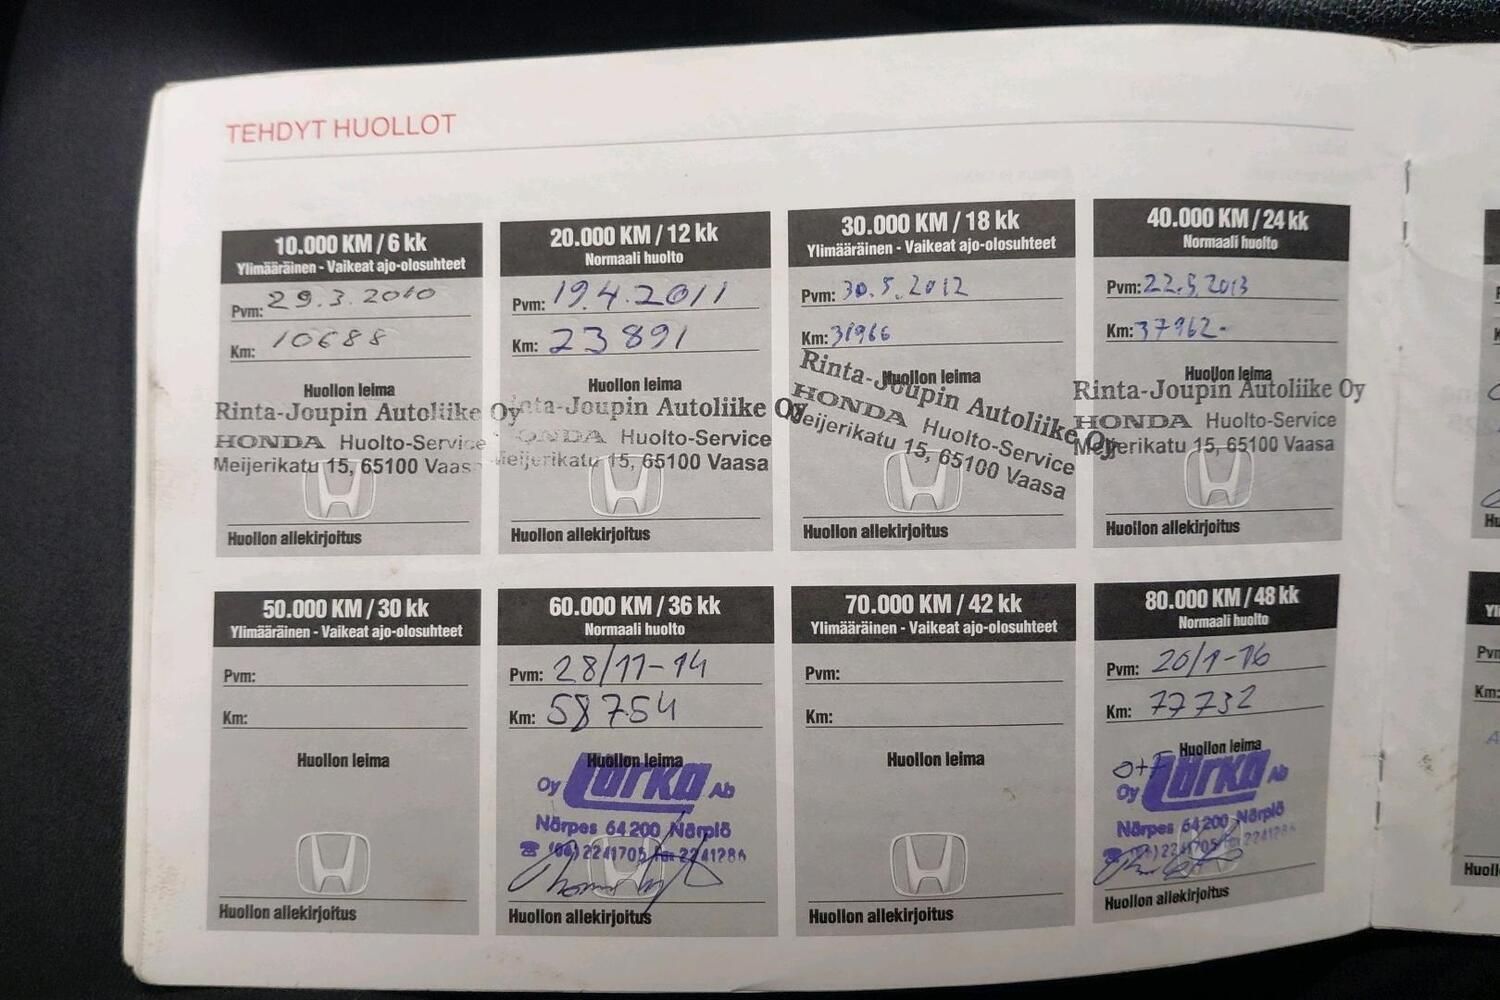 TEHDYT HUOLLOT
10.000 KM / 6 kk
Ylimääräinen - Vaikeat ajo-olosuhteet
Pvm: 29.3.2010
Km: 10688
Huollon leima
Rinta-Joupin Autoliike Oy
HONDA Huolto-Service
Meijerikatu 15, 65100 Vaasa
Huollon allekirjoitus
20.000 KM / 12 kk
Normaali huolto
Pvm: 19.4.2011
Km: 23891
Huollon leima
Rinta-Joupin Autoliike Oy
HONDA Huolto-Service
Meijerikatu 15, 65100 Vaasa
Huollon allekirjoitus
30.000 KM / 18 kk
Ylimääräinen - Vaikeat ajo-olosuhteet
Pvm: 30.5.2012
Km: 31966
Huollon leima
Rinta-Joupin Autoliike Oy
HONDA Huolto-Service
Meijerikatu 15, 65100 Vaasa
Huollon allekirjoitus
40.000 KM / 24 kk
Normaali huolto
Pvm: 22.5.2013
Km: 37962-
Huollon leima
Rinta-Joupin Autoliike Oy
HONDA Huolto-Service
Meijerikatu 15, 65100 Vaasa
Huollon allekirjoitus
50.000 KM / 30 kk
Ylimääräinen - Vaikeat ajo-olosuhteet
Pvm:
Km:
Huollon leima
Huollon allekirjoitus
60.000 KM / 36 kk
Normaali huolto
Pvm: 28/11-14
Km: 58754
Huollon leima
Oy Lörka Ab
Närpes 64200 Närpiö
☎ (06) 2241705 fax 2241286
Huollon allekirjoitus
70.000 KM / 42 kk
Ylimääräinen - Vaikeat ajo-olosuhteet
Pvm:
Km:
Huollon leima
Huollon allekirjoitus
80.000 KM / 48 kk
Normaali huolto
Pvm: 20/1-16
Km: 77732
Huollon leima
O+F
Oy Lörka Ab
Närpes 64200 Närpiö
☎ (06) 2241705 fax 2241286
Huollon allekirjoitus